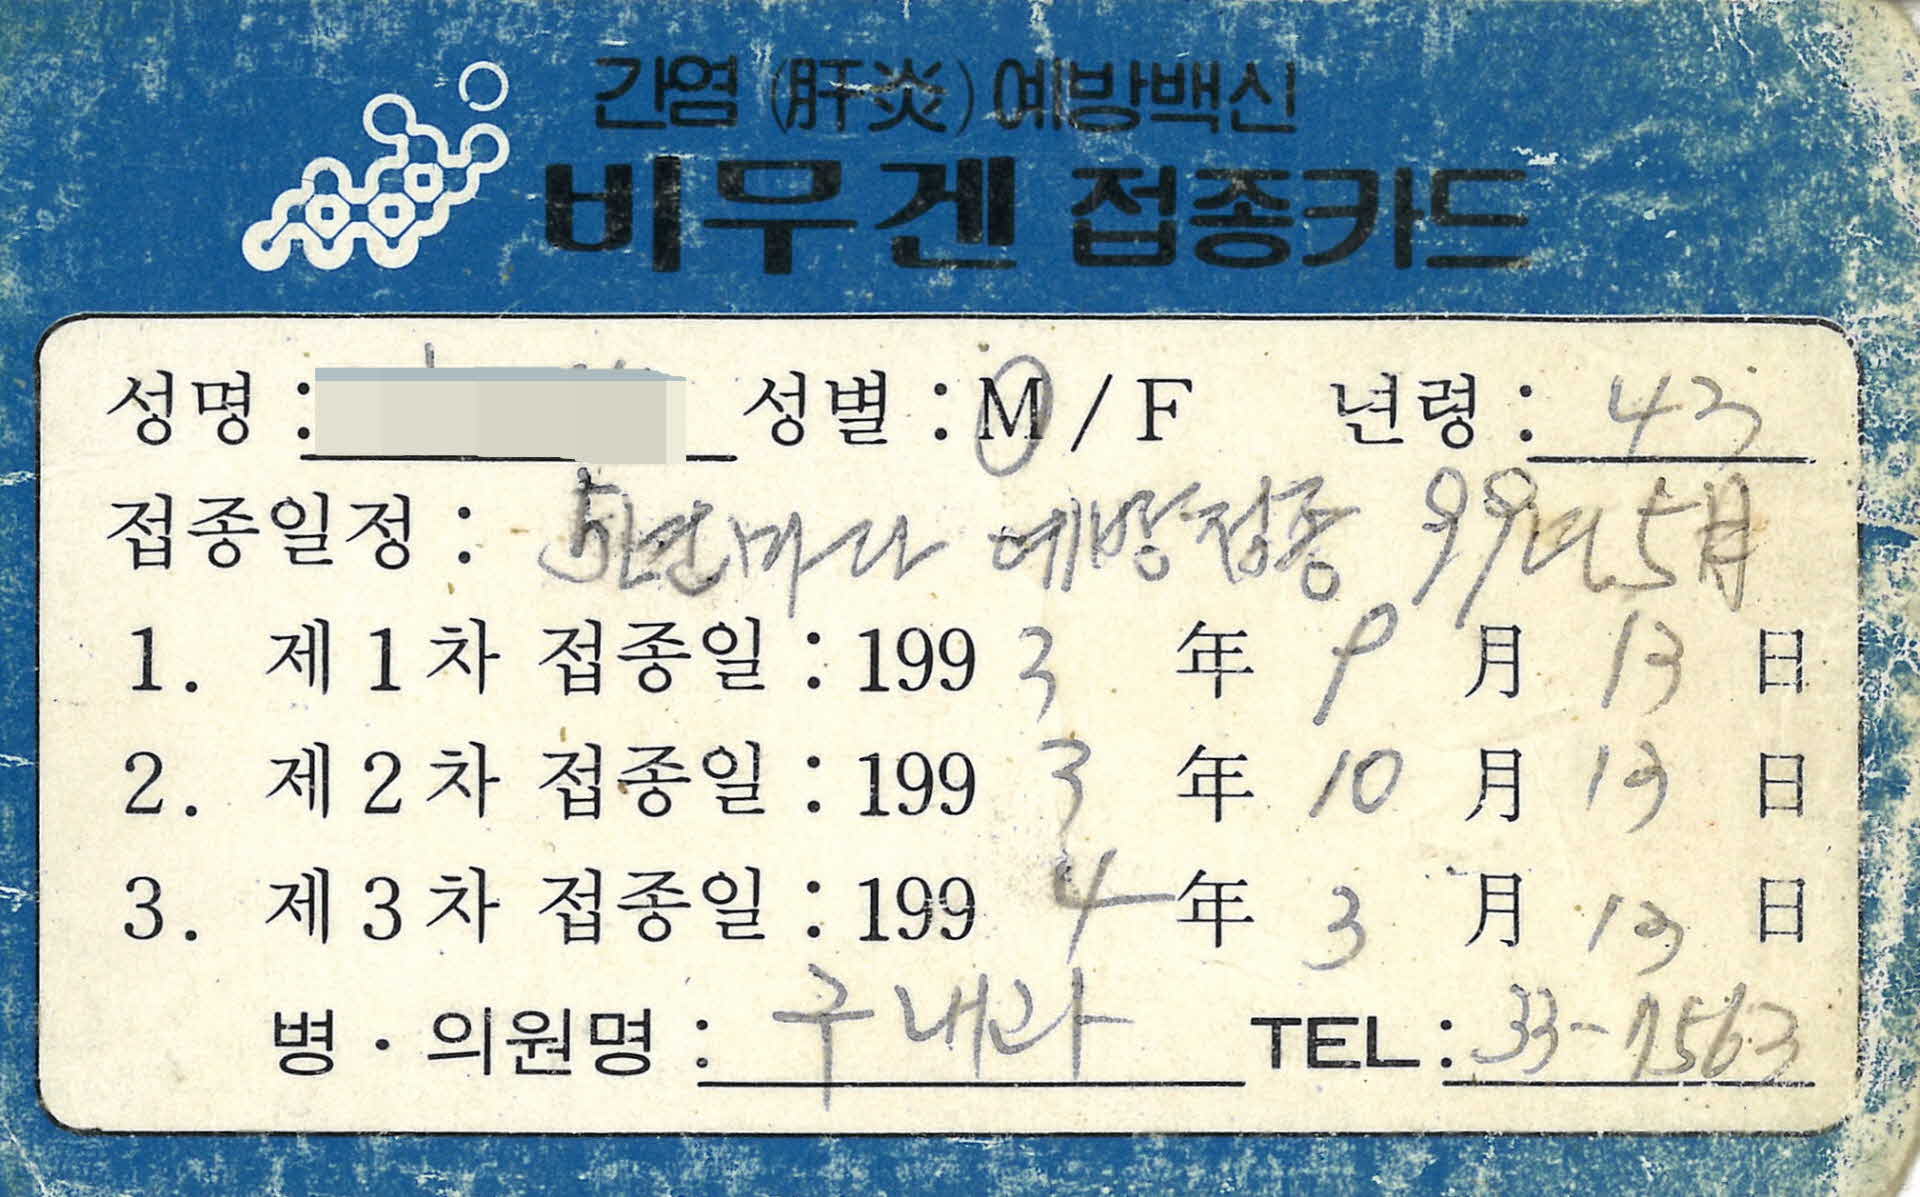 간염 (肝炎) 예방백신
비무겐 접종카드
성명 : 성별 : M / F 년령 : 43
접종일정 : 5년마다 예방접종 99년 5月
1. 제 1 차 접종일 : 1993 年 9 月 13 日
2. 제 2 차 접종일 : 1993 年 10 月 13 日
3. 제 3 차 접종일 : 1994 年 3 月 13 日
병 · 의원명 : 구내과 TEL : 33-7563